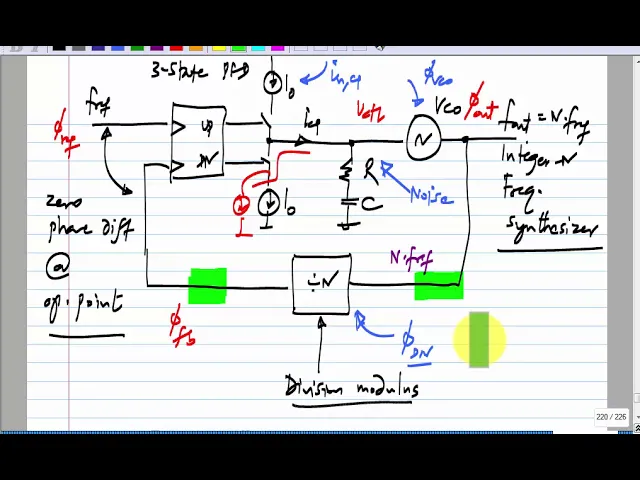 3-state PFD
I0
in,cp
φvco
fref
UP
DN
icp
Vctl
VCO
φout
fout = N·fref
φref
R
C
Noise
Integer-N
Freq.
synthesizer
I0
zero
phase diff
@
op. point
÷N
N·fref
φfb
φDN
Division modulus
220 / 226